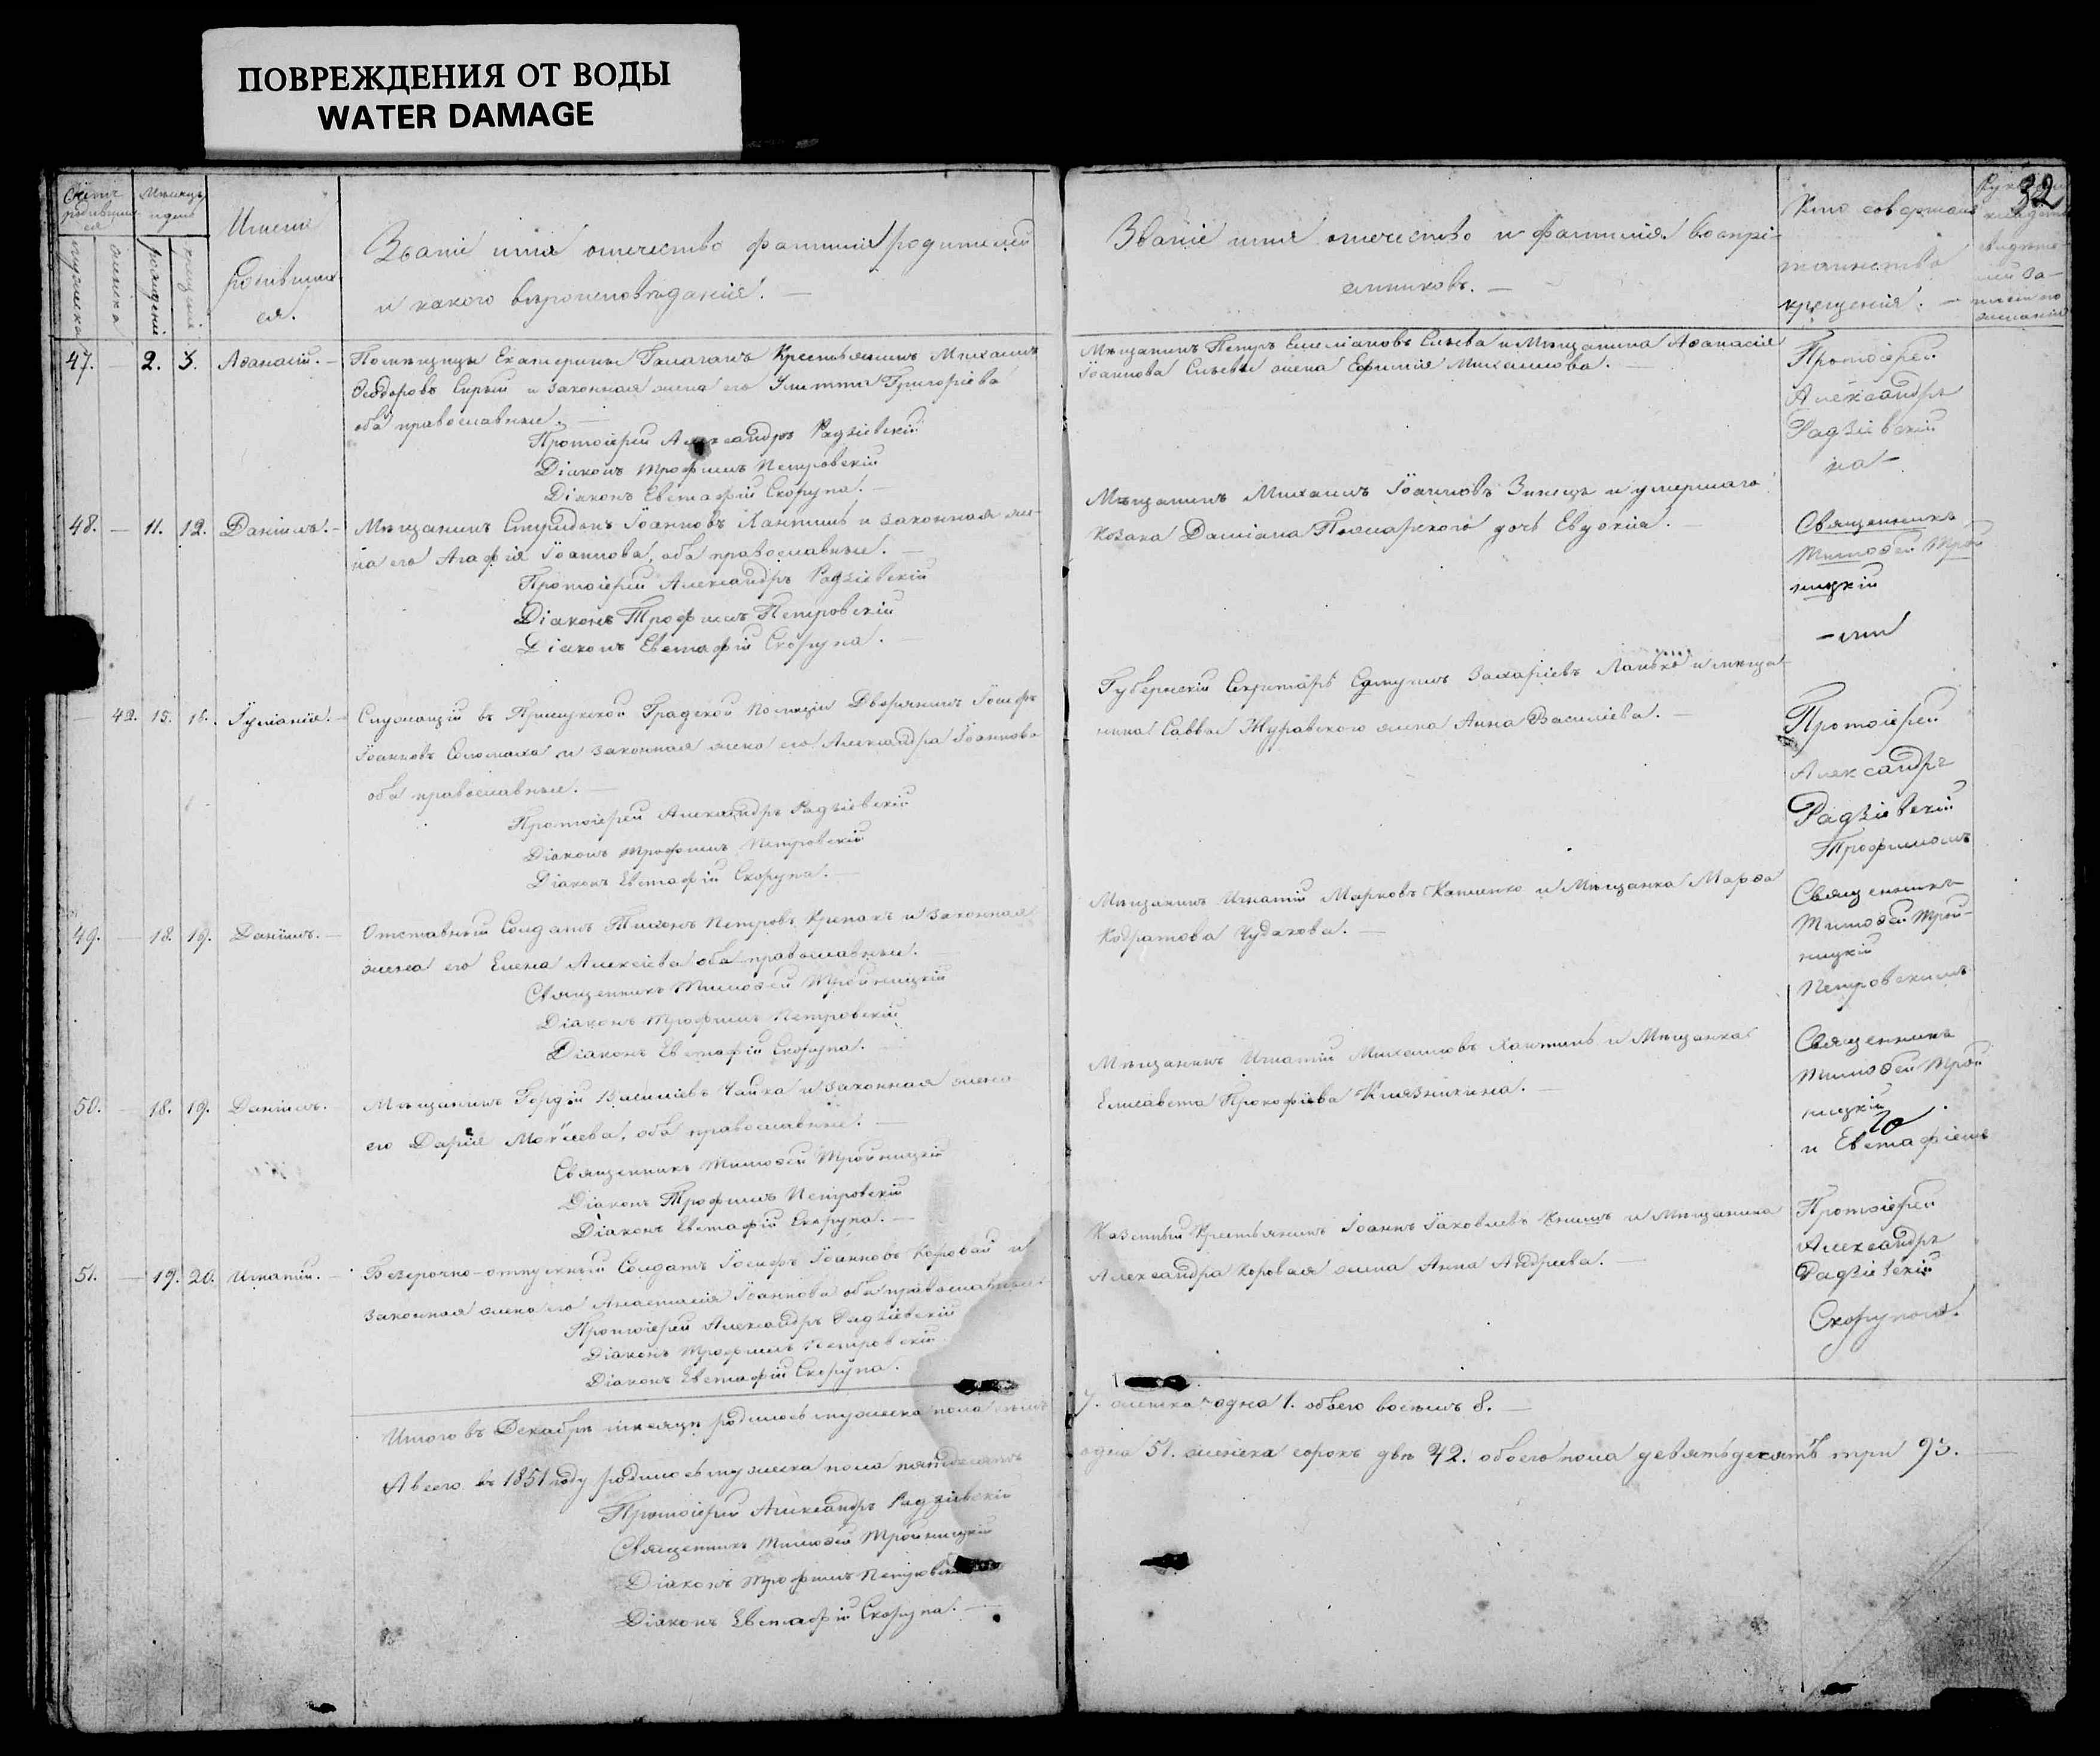 ПОВРЕЖДЕНИЯ ОТ ВОДЫ
WATER DAMAGE
32
Счетъ родившихся
Мѣсяцъ и день
Имена родившихся.
Званіе имя отечество фамилія родителей
и какого вѣроисповѣданія. —
мужеска
женска
рожденія
крещенія
Званіе имя отечество и фамилія воспрі-
емниковъ. —
Кто совершалъ
таинство
крещенія. —
47. — 2. 3. Аѳанасій. —
Помѣщицы Екатерины Галаганъ Крестьянинъ Михаилъ
Ѳеодоровъ Сирый и законная жена его Улитта Григоріева
оба православные. —
Протоіерей Александръ Радзіевскій
Діаконъ Трофимъ Петровскій
Діаконъ Евстафій Скорупа. —
Мѣщанинъ Петръ Емеліановъ Сыева и Мѣщанина Аѳанасія
Іоаннова Сыевы жена Ефимія Михаилова. —
Протоіерей
Александръ
Радзіевскій
на —
48. — 11. 12. Даніилъ. —
Мѣщанинъ Спиридонъ Іоанновъ Хантинъ и законная же-
на его Агафія Іоаннова, оба православные. —
Протоіерей Александръ Радзіевскій
Діаконъ Трофимъ Петровскій
Діаконъ Евстафій Скорупа. —
Мѣщанинъ Михаилъ Іоанновъ Зинецъ и умершаго
козака Даміана Пожарскаго дочь Евдокія. —
Священникъ
Тимоѳей Трой
ницкій
— 42. 15. 16. Іуліанія. —
Служащій въ Прилукской Градской Полиціи Дворянинъ Іосифъ
Іоанновъ Соломаха и законная жена его Александра Іоаннова
оба православные. —
Протоіерей Александръ Радзіевскій
Діаконъ Трофимъ Петровскій
Діаконъ Евстафій Скорупа. —
Губернскій Секретарь Захаріевъ и мѣща-
нина Саввы Журавского жена Анна Василіева. —
Протоіерей
Александръ
Радзіевскій
Трофимомъ
49. — 18. 19. Даніилъ. —
Отставный Солдатъ Петровъ и законная
жена его Елена Алексіева оба православные. —
Священникъ Тимоѳей Тройницкій
Діаконъ Трофимъ Петровскій
Діаконъ Евстафій Скорупа. —
Мѣщанинъ Игнатій Марковъ Кащенко и Мѣщанка Марѳа
Кодратова Чудакова. —
Священникъ
Тимоѳей Трой-
ницкій
Петровскимъ
50. — 18. 19. Даніилъ. —
Мѣщанинъ Гордѣй Василіевъ Чайка и законная жена
его Дарія Моисеева, оба православные. —
Священникъ Тимоѳей Тройницкій
Діаконъ Трофимъ Петровскій
Діаконъ Евстафій Скорупа. —
Мѣщанинъ Игнатій Михаиловъ Хантинъ и Мѣщанка
Елисавета Прокофіева Князничина. —
Священникъ
Тимоѳей Трой
ницкій
и Евстафіемъ
51. — 19. 20. Игнатій. —
Безсрочно-отпускный Солдатъ Іосифъ Іоанновъ Коровай и
законная жена его Анастасія Іоаннова оба православные
Протоіерей Александръ Радзіевскій
Діаконъ Трофимъ Петровскій
Діаконъ Евстафій Скорупа. —
Казенный Крестьянинъ Іоаннъ Іаковлевъ и Мѣщанина
Александра Коровая жена Анна Андреева. —
Протоіерей
Александръ
Радзіевскій
Скорупою.
Итого въ Декабрѣ мѣсяцѣ родилось мужеска пола семь 7. женска одна 1. обоего восемь 8. —
А всего въ 1851 году родилось мужеска пола пятьдесятъ одна 51. женска сорокъ двѣ 42. обоего пола девятьдесятъ три 93. —
Протоіерей Александръ Радзіевскій
Священникъ Тимоѳей Тройницкій
Діаконъ Трофимъ Петровскій
Діаконъ Евстафій Скорупа. —